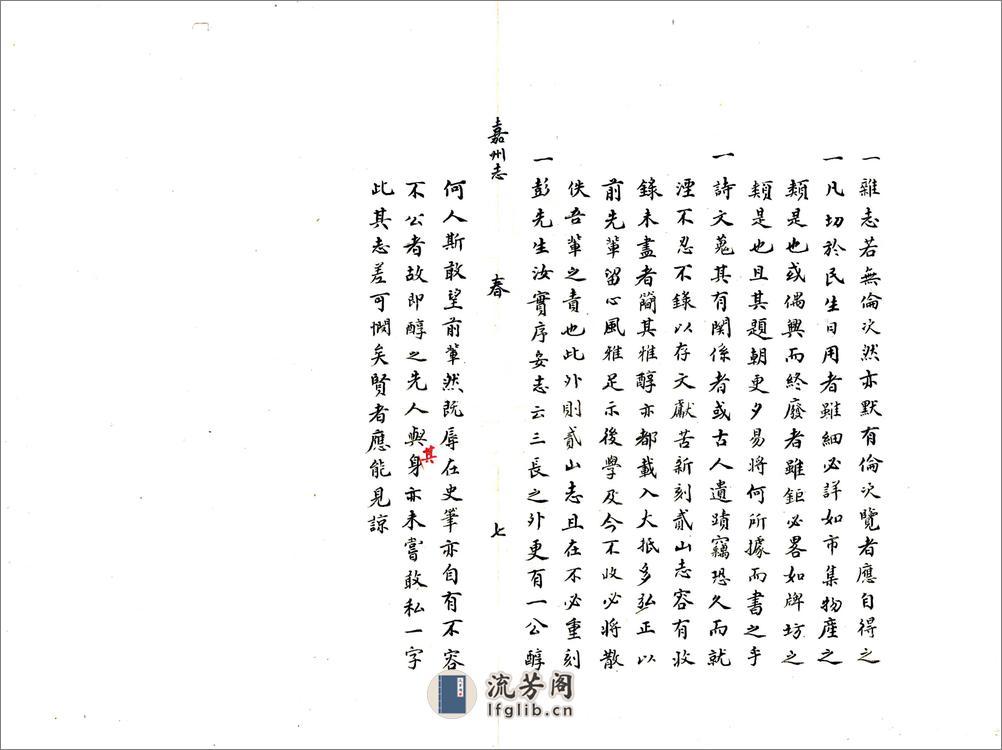 一雜志若無倫次然亦默有倫次覽者應自得之
一凡切於民生日用者雖細必詳如市集物產之
類是也或偶興而終廢者雖鉅必畧如牌坊之
類是也且其題朝更夕易將何所據而書之乎
一詩文蒐其有関係者或古人遺蹟竊恐久而就
湮不忍不錄以存文獻苦新刻貳山志容有收
錄未盡者簡其雅醇亦都載入大抵多弘正以
前先輩留心風雅足示後學及今不收必將散
佚吾輩之責也此外則貳山志且在不必重刻
一彭先生汝實序安志云三長之外更有一公醇
嘉州志
春
七
何人斯敢望前輩然既辱在史筆亦自有不容
不公者故即醇之先人與其身亦未嘗敢私一字
此其志差可憫矣賢者應能見諒
流芳阁
lfglib.cn